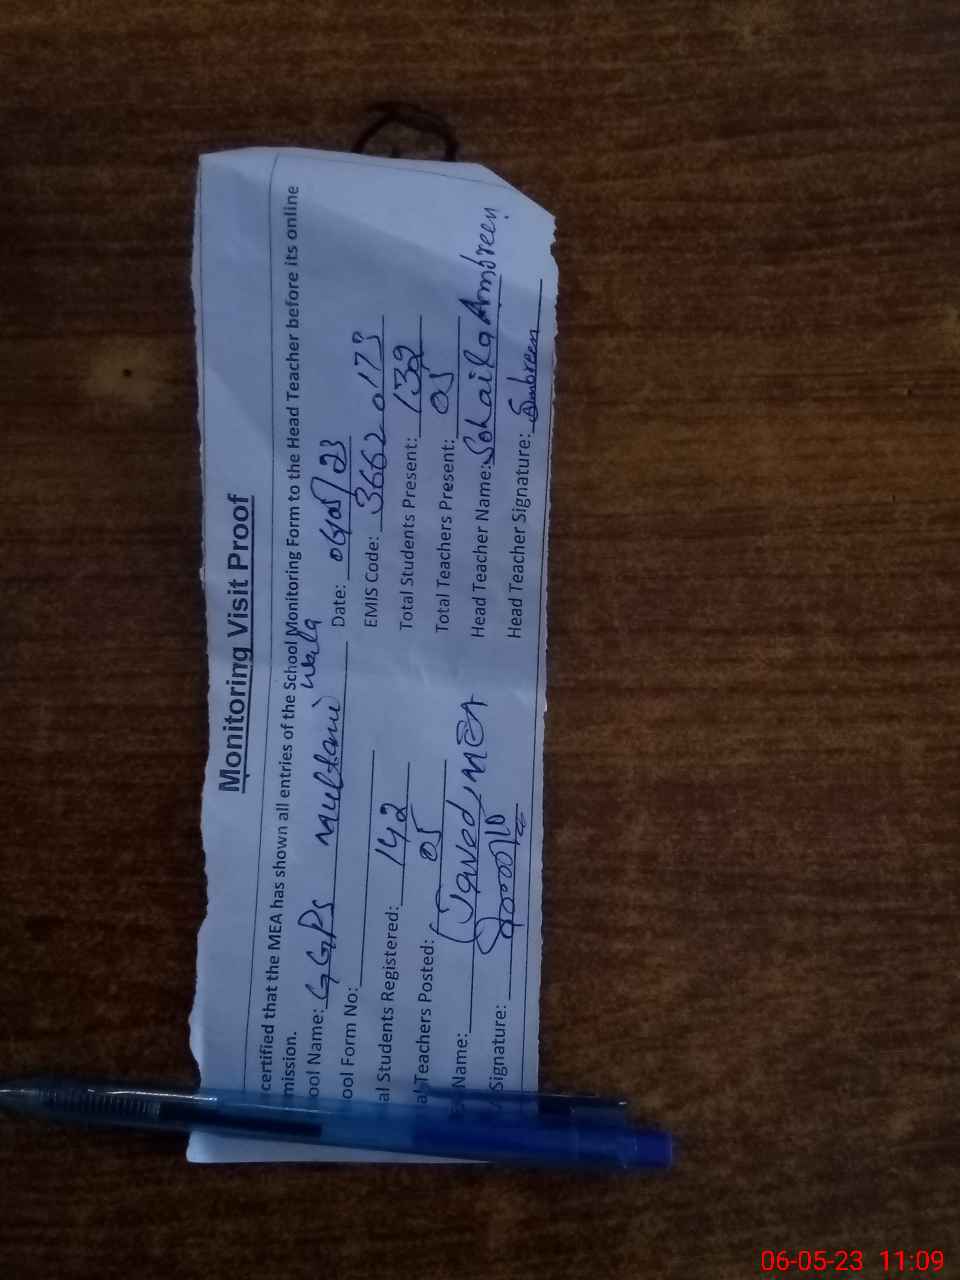 Monitoring Visit Proof
certified that the MEA has shown all entries of the School Monitoring Form to the Head Teacher before its online
mission.
ool Name: GGPS Multani Wala Date: 06/05/23
ool Form No: EMIS Code: 3662 0173
al Students Registered: 142 Total Students Present: 139
al Teachers Posted: 05 Total Teachers Present: 05
Name: Javed, MEA Head Teacher Name: Sohaila Ambreen
Signature: Head Teacher Signature: Ambreen
06-05-23 11:09